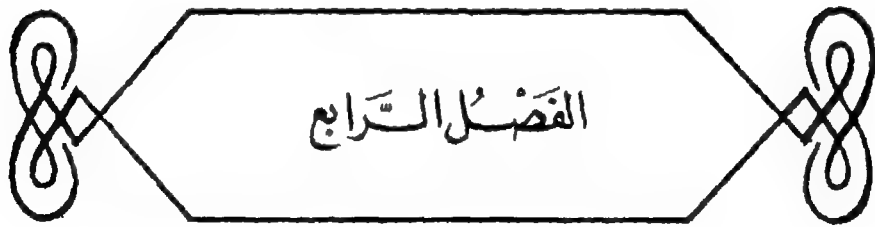 الفَصْلُ الرَّابع